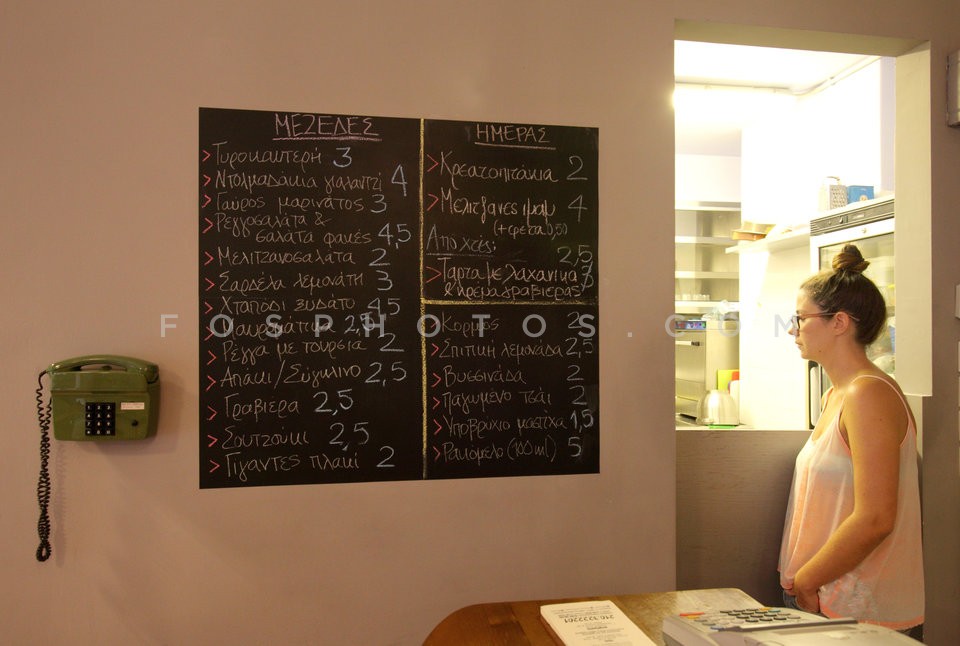 ΜΕΖΕΔΕΣ
> Τυροκαυτερή 3
> Ντολμαδάκια γιαλαντζί 4
> Γαύρος μαρινάτος 3
> Ρεγγοσαλάτα &
σαλάτα φακές 4,5
> Μελιτζανοσαλάτα 2
> Σαρδέλα λεμονάτη 3
> Χταπόδι ξυδάτο 4,5
> 2,5
> Ρέγγα με τουρσιά 2
> Απάκι/Σύγκλινο 2,5
> Γραβιέρα 2,5
> Σουτζούκι 2,5
> Γίγαντες πλακί 2
ΗΜΕΡΑΣ
> Κρεατοπιτάκια 2
> Μελιτζάνες ιμάμ 4
(+φέτα 0,50
Από χθές: 2,5
> Τάρτα με λαχανικά 3
& κρέμα γραβιέρας
> Κορμός 2
> Σπιτική λεμονάδα 2,5
> Βυσσινάδα 2
> Παγωμένο τσάι 2
> Υποβρύχιο μαστίχα 1,5
> Ρακόμελο (100ml) 5
FOSPHOTOS.COM
210 3222201